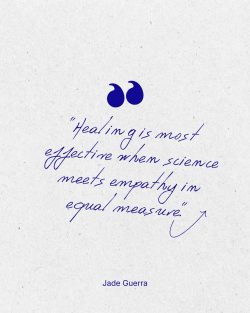 "Healing is most
effective when science
meets empathy in
equal measure"
Jade Guerra